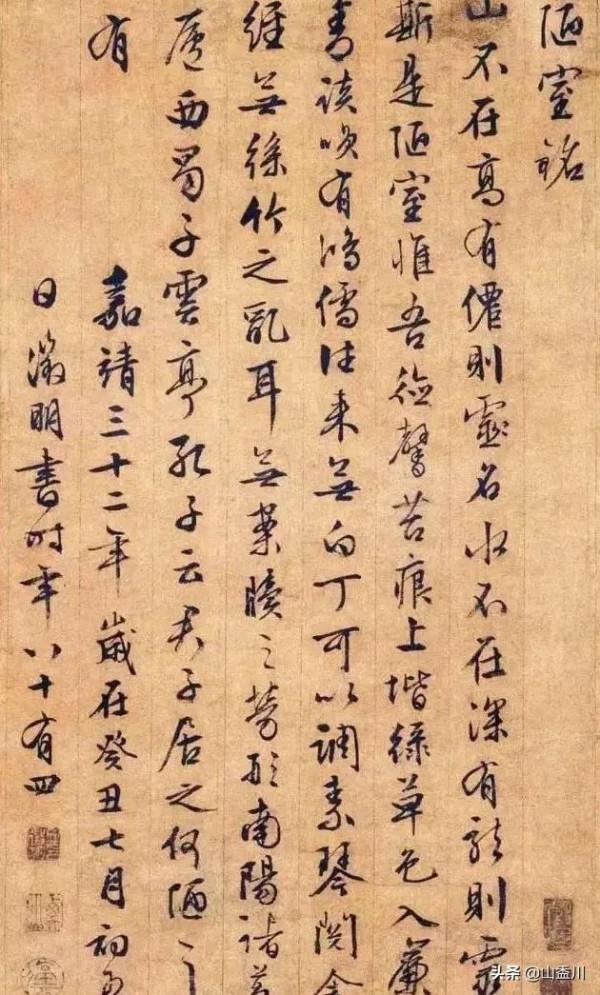 陋室銘
山不在高有僊則靈名水不在深有龍則靈
斯是陋室惟吾德馨苔痕上堦綠草色入簾
青談咲有鴻儒往来無白丁可以調素琴閱金
經無絲竹之亂耳無案牘之勞形南陽諸葛
廬西蜀子雲亭孔子云君子居之何陋之
有
嘉靖三十二年歲在癸丑七月初
日徵明書時年八十有四
头条